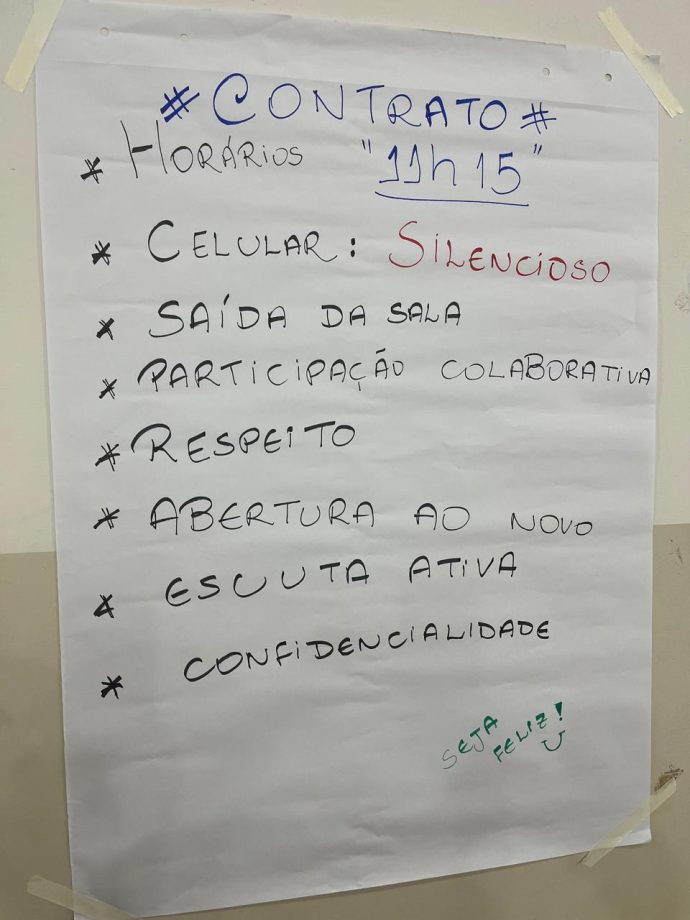 # CONTRATO #
* HORÁRIOS "11h15"
* CELULAR: SILENCIOSO
* SAÍDA DA SALA
* PARTICIPAÇÃO COLABORATIVA
* RESPEITO
* ABERTURA AO NOVO
* ESCUUTA ATIVA
* CONFIDENCIALIDADE
SEJA
FELIZ!